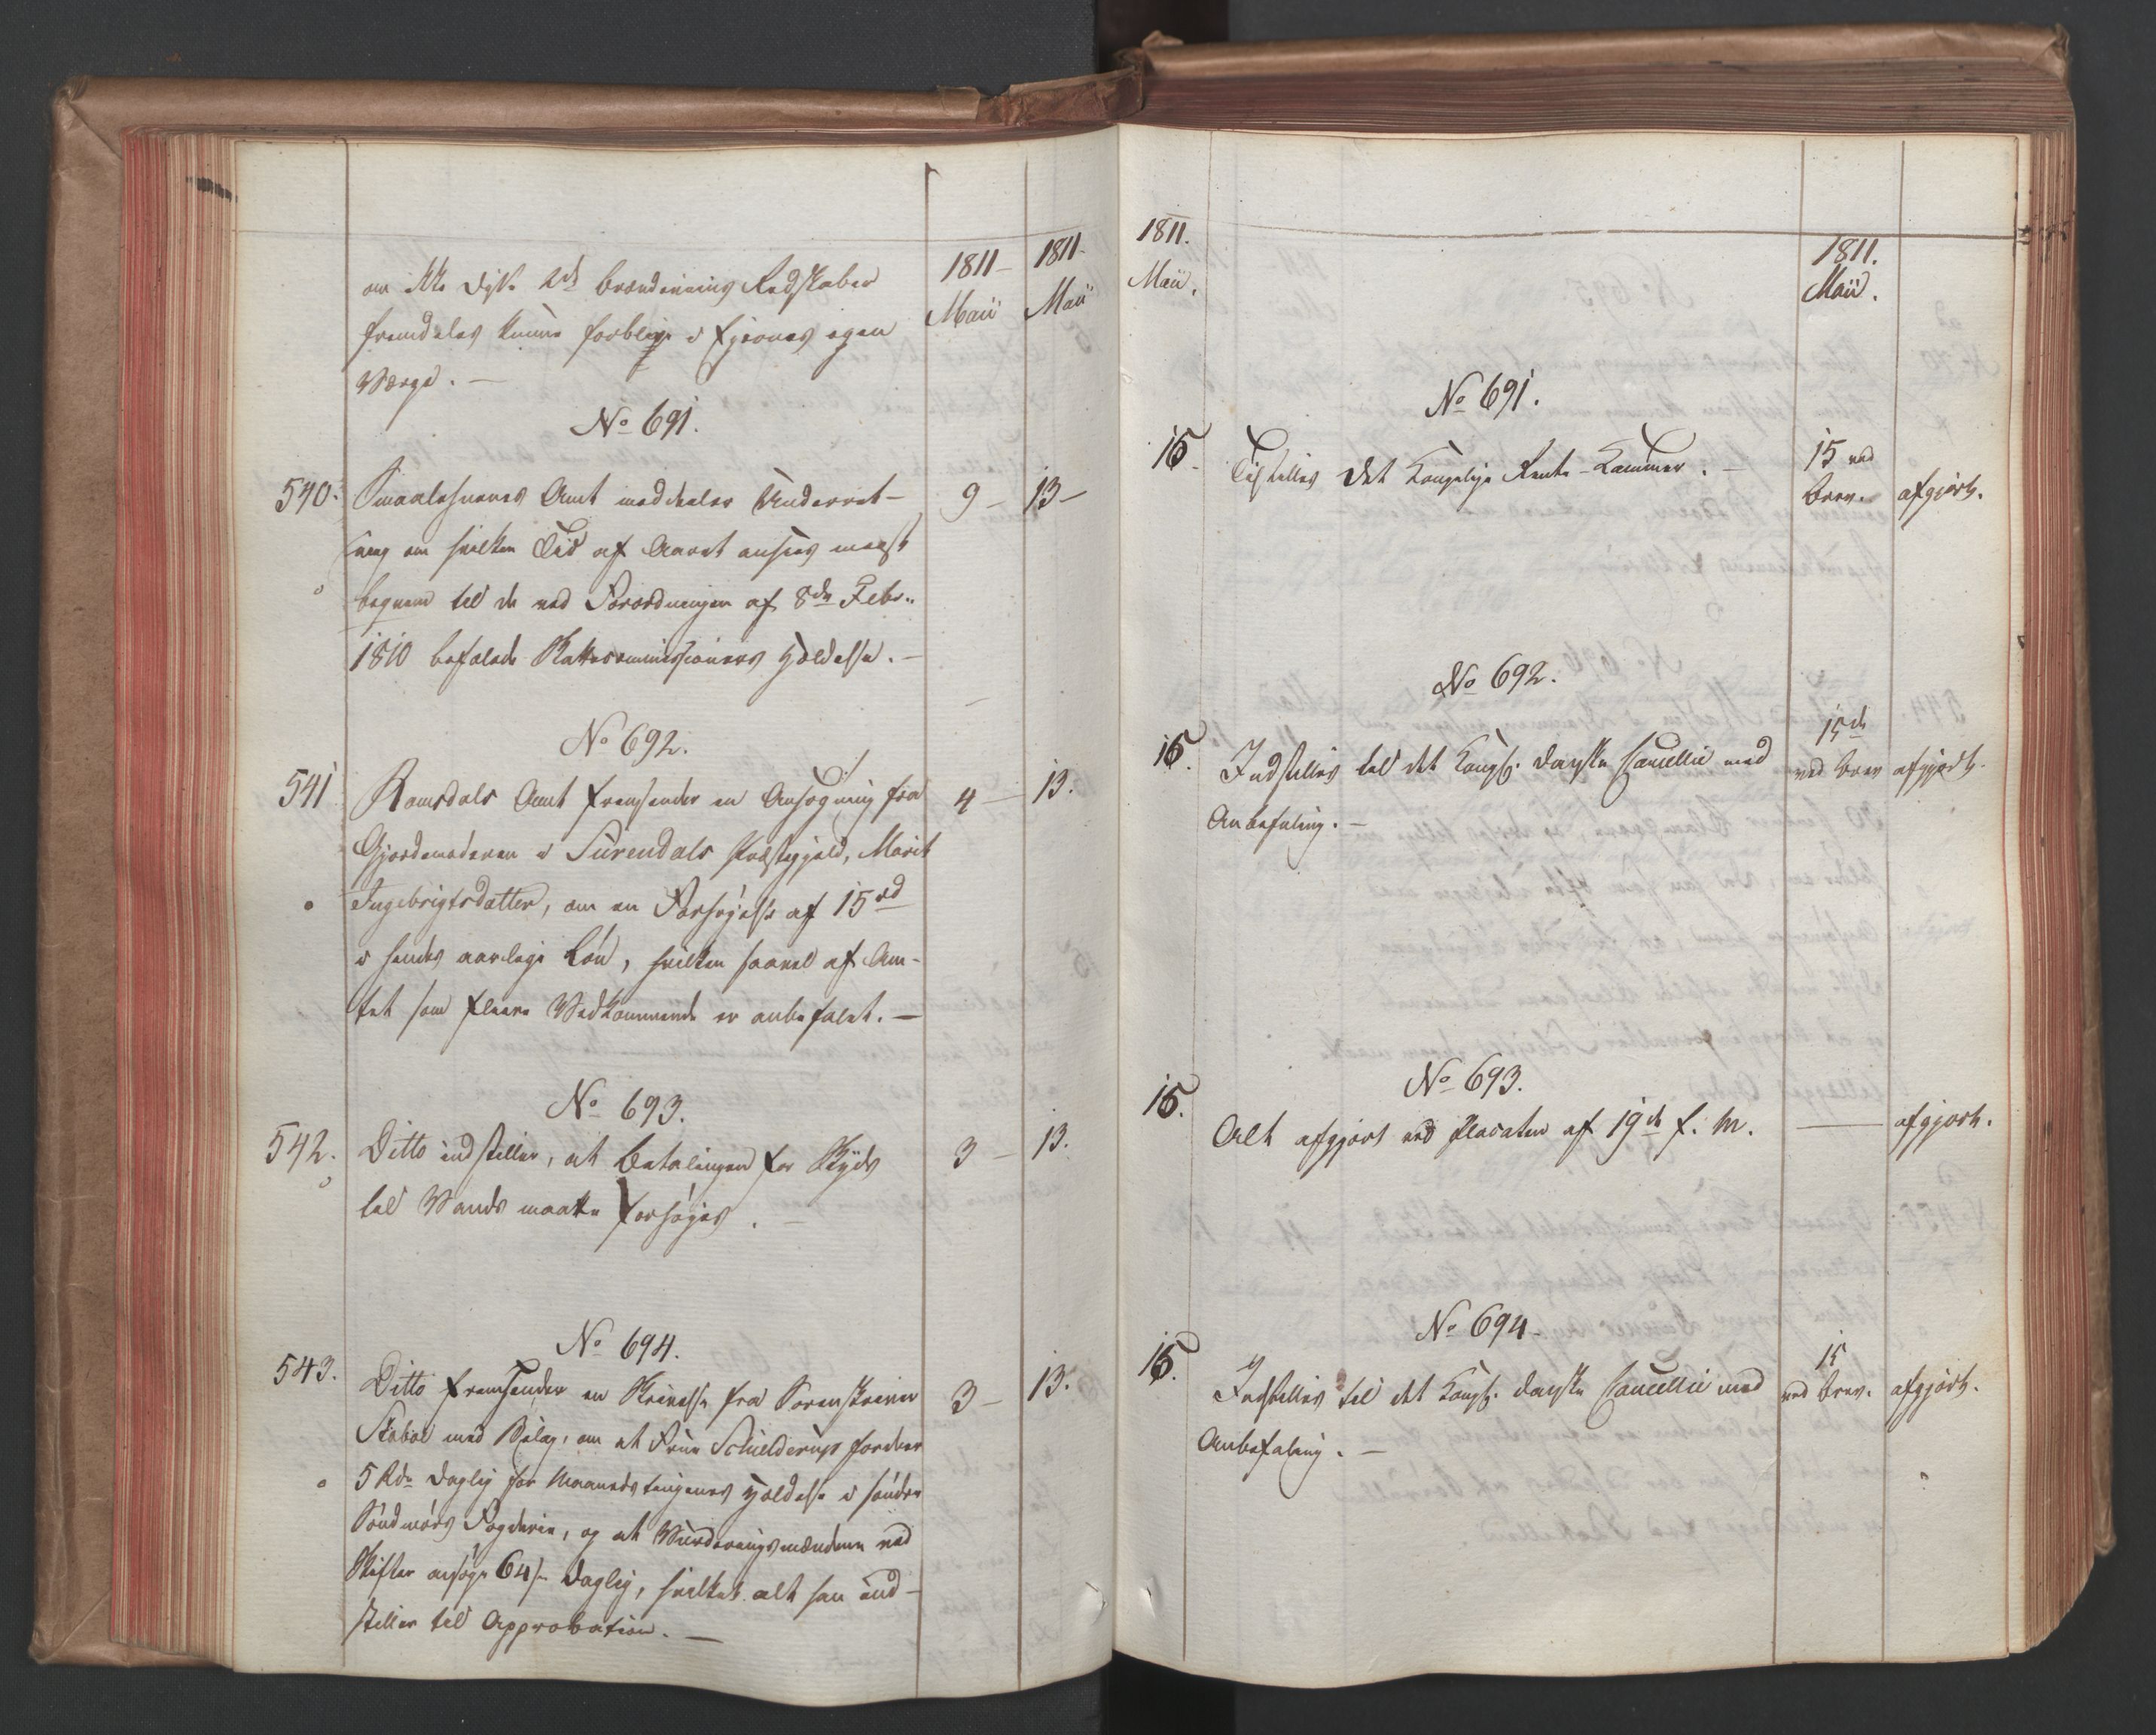 1811-
Maii
1811-
Maii
om ikke Brændeviins Redskaber
fremdeles kunne forblive i Ejernes egen
Værge. -
No 691.
540. Smaalehnenes Amt meddeeler Underret- 9- 13-
ning om hvilken Tid af Aaret ansees meest
beqvem til de ved Forordningen af 8de Febr.
1810 befalede Skattecommissioners Holdelse. -
No 692.
541 Romsdals Amt fremsender en Ansøgning fra 4- 13.
Gjordemoderen i Surendals Præstegjeld, Marit
Ingebrigtsdatter, om en Forhøjelse af 15 rd
i hendes aarlige Løn, hvilken saavel af Am-
tet som fleere Vedkommende er anbefalet. -
No 693.
542. Ditto indstiller, at Betalingen for Skyds 3- 13.
til Vands maatte forhøjes. -
No 694.
543. Ditto fremsender en Skrivelse fra Sorenskriver 3- 13.
Stabel med Bilag, om at Schielderup fordrer
5 Rdr daglig for Maanedstingenes Holdelse i søndre
Søndmørs Fogderie, og at Vurderingsmændene ved
Skifter ansøge 64 s daglig, hvilket alt han ind-
stiller til Approbation. -
1811.
Maii.
1811.
Maii.
No 691.
15. Tilstilles det Kongelige Rente-Kammer. - 15 ved
Brev. afgjort.
No 692.
15. Indstilles til det Kongl. danske Cancellie med 15de
ved Brev afgjort.
Anbefaling. -
No 693.
15. Alt afgjort ved Placaten af 19de f. M. - afgjort.
No 694.
15. Indstilles til det Kongl. danske Cancellie med 15
ved Brev. afgjort.
Anbefaling. -